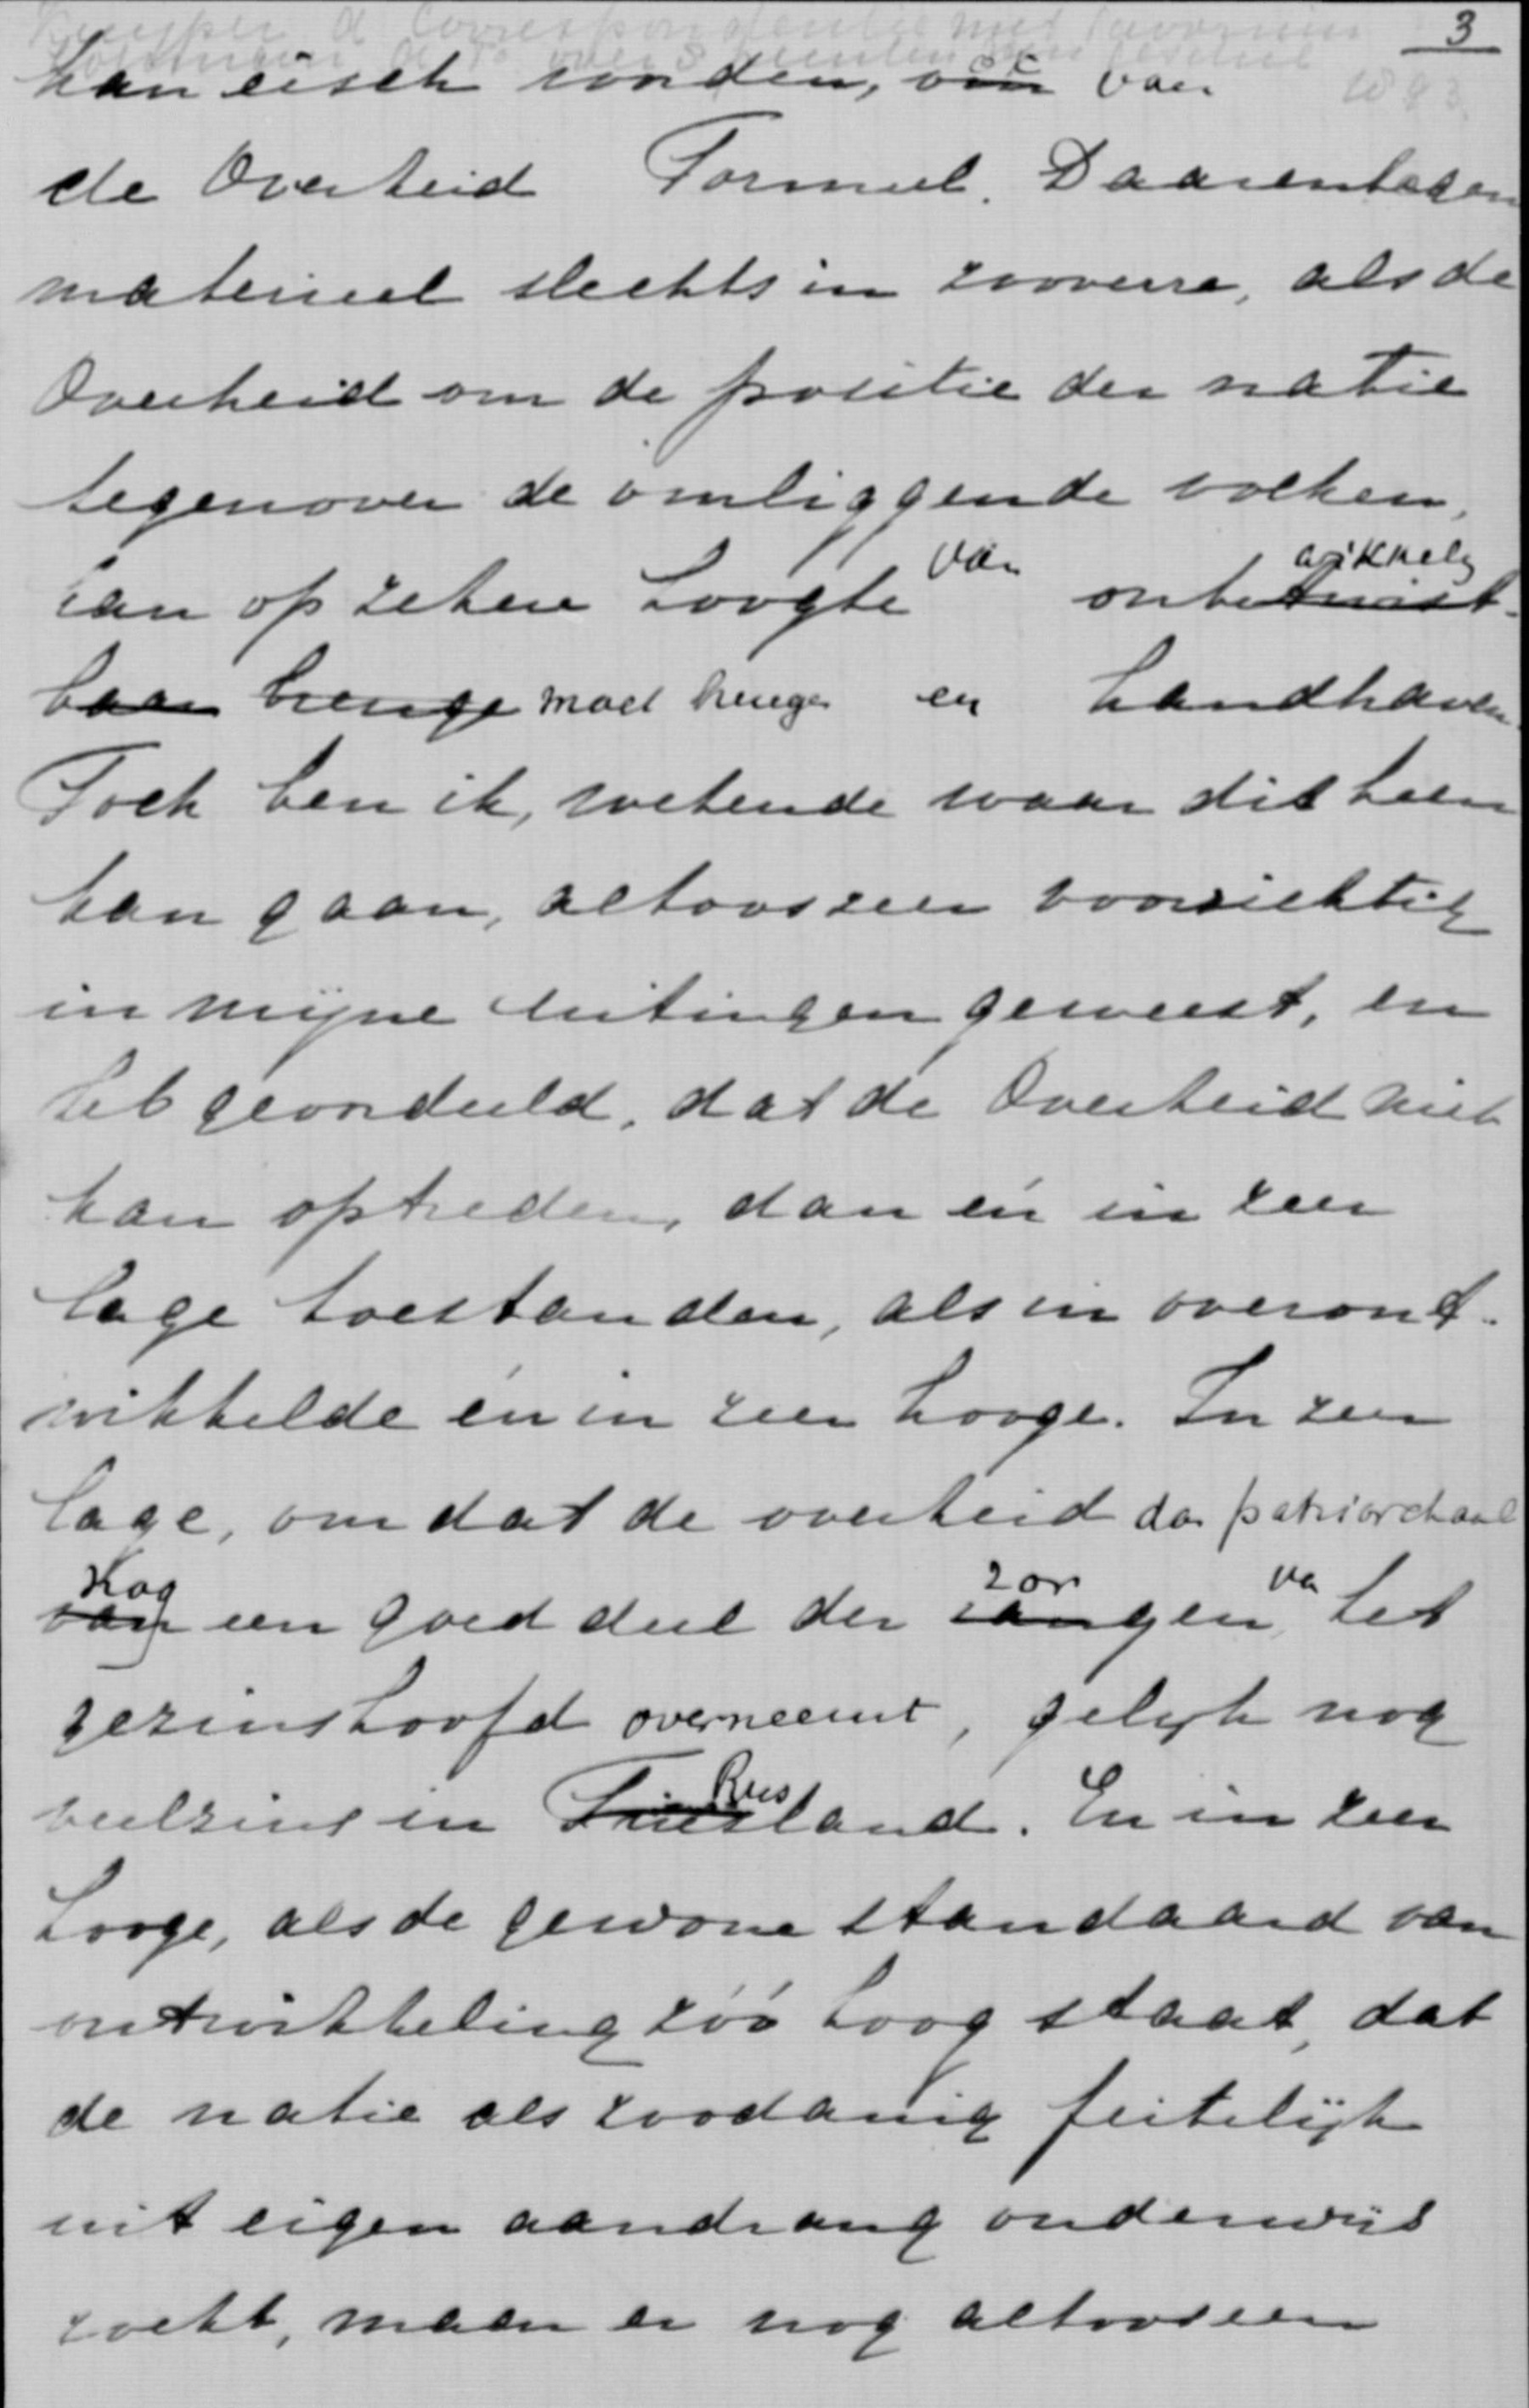 3
kan eisch worden, van
de Overheid Formeel. Daarentegen
materieel slechts in zooverre, als de
Overheid om de positie der natie
tegenover de omliggende volken,
kan op zekere hoogte van ontwikkelg
baar brenge moet brengen en handhaven.
Toch ben ik, wetende waar dit heen
kan gaan, altoos zeer voorzichtig
in mijne uitingen geweest, en
heb geoordeeld, dat de Overheid niet
kan optreden, dan én in zeer
lage toestanden, als in overont-
wikkelde én in zeer hooge. In zeer
lage, omdat de overheid dan patriarchaal
nog een goed deel der zorgen van het
gezinshoofd overneemt, gelijk nog
veelzins in Rusland. En in zeer
hooge, als de gewone standaard van
ontwikkeling zóó hoog staat, dat
de natie als zoodanig feitelijk
uit eigen aandrang onderwijs
zoekt, maar er nog altoos een